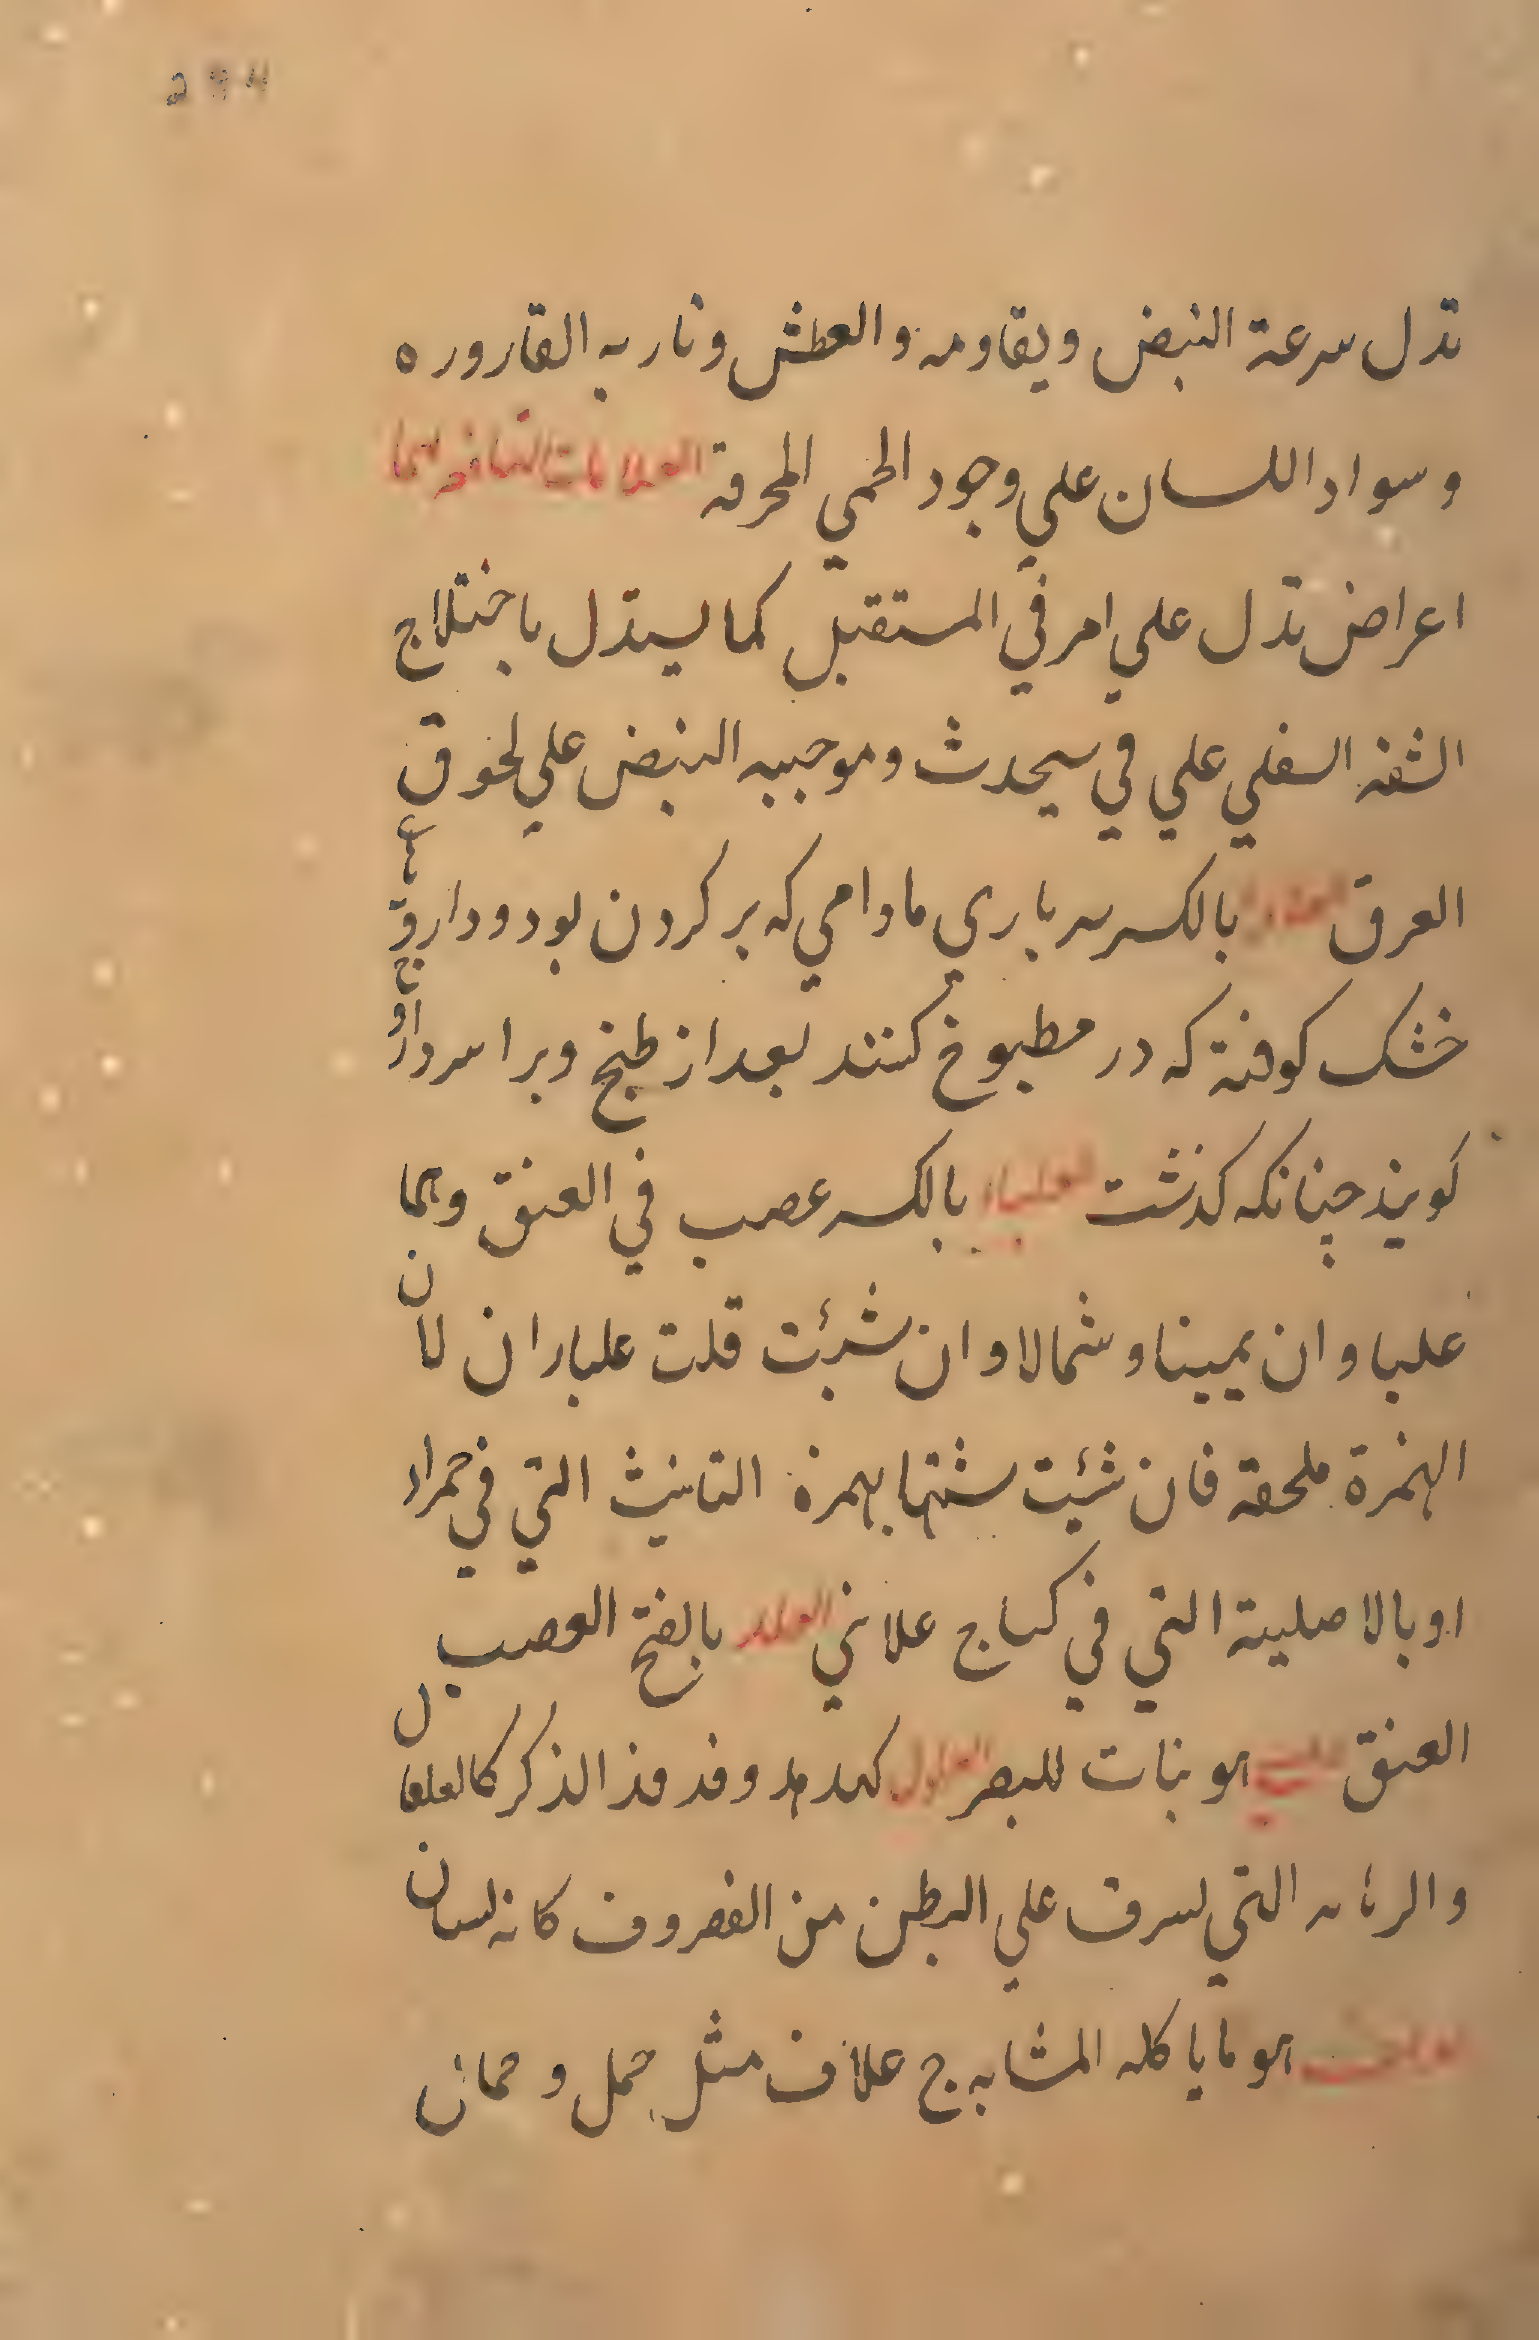 تدل سرعة النبض ويقاومه والعطش وناريه القاروره
وسواد اللسان علي وجود الحمي المحرقه العلامات
اعراض تدل علي امر في المستقبل كما يستدل باختلاج
الشفه السفلي علي في سيحدث وموجبيه النبض علي لحوق
العرق بالكسر سرباري مادامي كه بر كردن بود ودارو
خشك كوفته كه در مطبوخ كنند بعد از طبخ وبرا سردارو
كويند چنانكه كذشت العلباء بالكسر عصب في العنق وهما
علباوان يمينا وشمالا وان شئت قلت علباران لان
الهمزة ملحقه فان شئت شبهتها بهمزة التانيث التي في حمراء
او بالاصلية التي في ج علاني بالفتح العصب
العنق هو بنات للبصر كهدهد وقد الذكر
والرهابه التي تشرف علي البطن من الغضروف كانه لسان
هو ما ياكله المشابه ج علاف مثل جمل وجمال